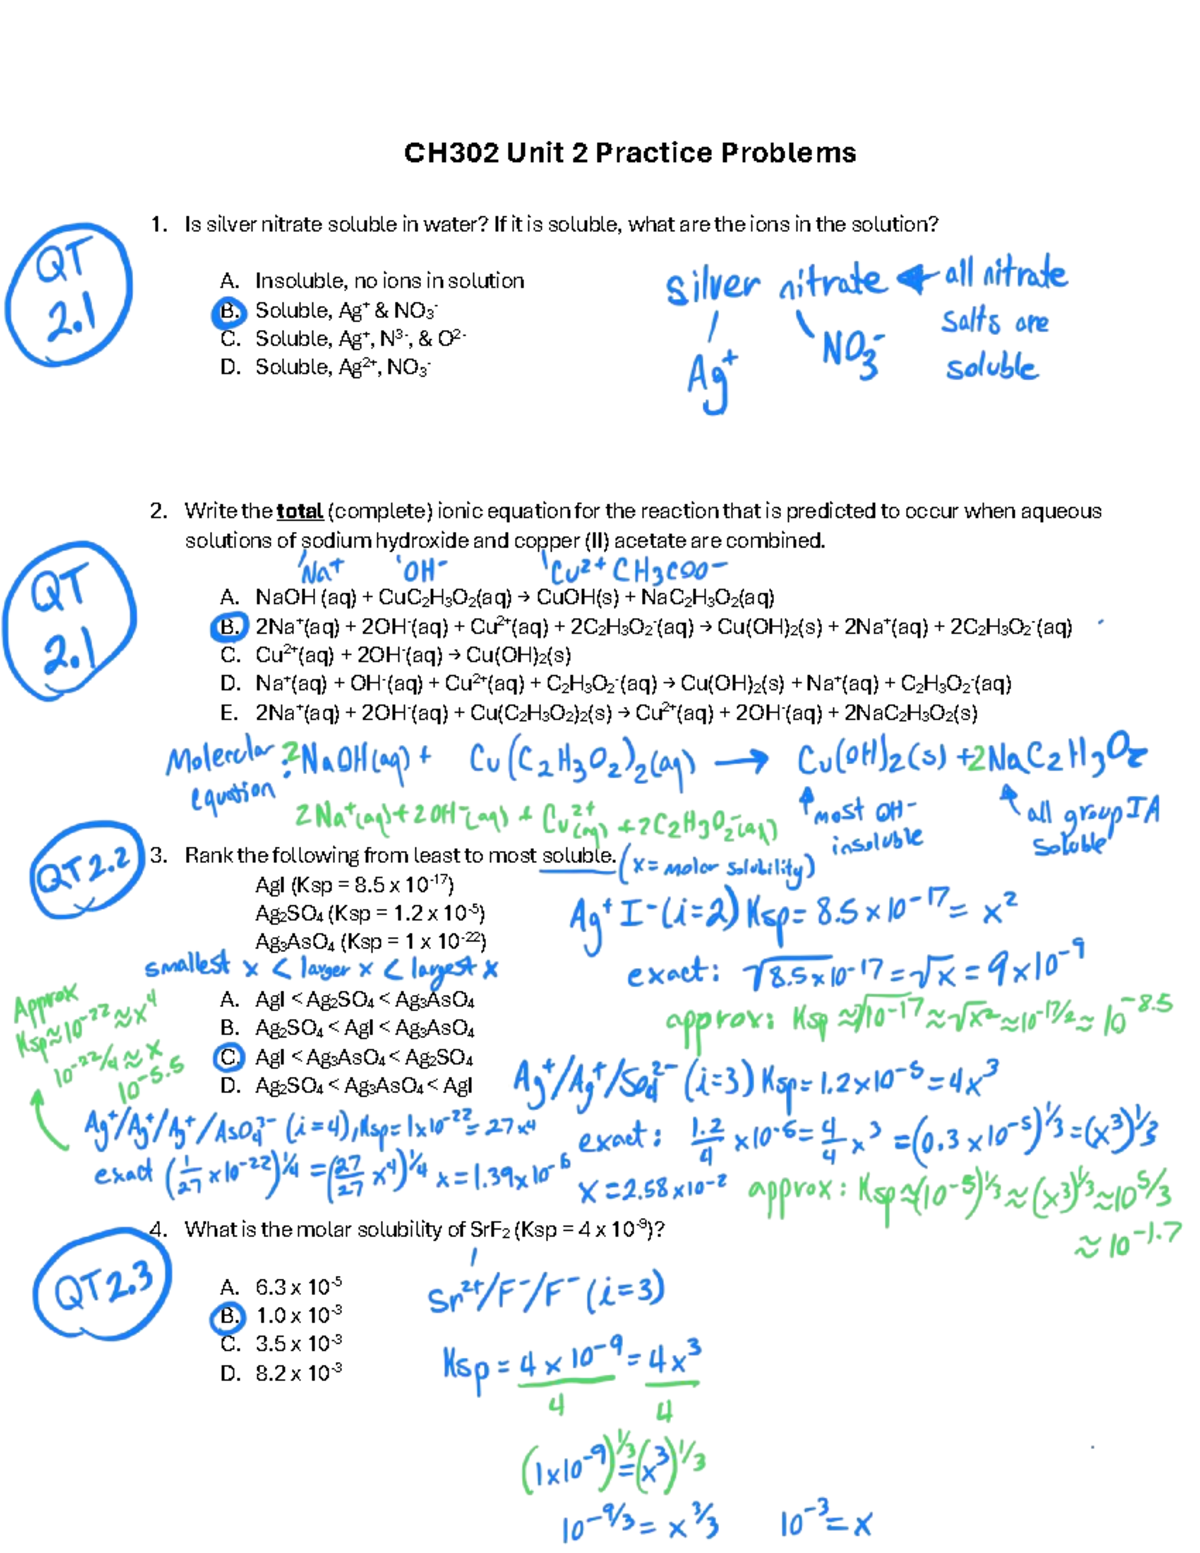 CH302 Unit 2 Practice Problems
QT 2.1
1. Is silver nitrate soluble in water? If it is soluble, what are the ions in the solution?
A. Insoluble, no ions in solution
B. Soluble, Ag⁺ & NO₃⁻
C. Soluble, Ag⁺, N³⁻, & O²⁻
D. Soluble, Ag²⁺, NO₃⁻
silver nitrate ← all nitrate
salts are
soluble
Ag⁺ NO₃⁻
QT 2.1
2. Write the total (complete) ionic equation for the reaction that is predicted to occur when aqueous
solutions of sodium hydroxide and copper (II) acetate are combined.
Na⁺ OH⁻ Cu²⁺ CH₃COO⁻
A. NaOH (aq) + CuC₂H₃O₂(aq) → CuOH(s) + NaC₂H₃O₂(aq)
B. 2Na⁺(aq) + 2OH⁻(aq) + Cu²⁺(aq) + 2C₂H₃O₂⁻(aq) → Cu(OH)₂(s) + 2Na⁺(aq) + 2C₂H₃O₂⁻(aq)
C. Cu²⁺(aq) + 2OH⁻(aq) → Cu(OH)₂(s)
D. Na⁺(aq) + OH⁻(aq) + Cu²⁺(aq) + C₂H₃O₂⁻(aq) → Cu(OH)₂(s) + Na⁺(aq) + C₂H₃O₂⁻(aq)
E. 2Na⁺(aq) + 2OH⁻(aq) + Cu(C₂H₃O₂)₂(s) → Cu²⁺(aq) + 2OH⁻(aq) + 2NaC₂H₃O₂(s)
Molecular equation : 2NaOH(aq) + Cu(C₂H₃O₂)₂(aq) → Cu(OH)₂(s) + 2NaC₂H₃O₂
2Na⁺(aq) + 2OH⁻(aq) + Cu²⁺(aq) + 2C₂H₃O₂⁻(aq)
↑ most OH⁻ insoluble
↑ all group IA soluble
QT 2.2
3. Rank the following from least to most soluble. (x = molar solubility)
AgI (Ksp = 8.5 x 10⁻¹⁷)
Ag₂SO₄ (Ksp = 1.2 x 10⁻⁵)
Ag₃AsO₄ (Ksp = 1 x 10⁻²²)
smallest x < larger x < largest x
A. AgI < Ag₂SO₄ < Ag₃AsO₄
B. Ag₂SO₄ < AgI < Ag₃AsO₄
C. AgI < Ag₃AsO₄ < Ag₂SO₄
D. Ag₂SO₄ < Ag₃AsO₄ < AgI
Ag⁺ I⁻ (i=2) Ksp = 8.5 x 10⁻¹⁷ = x²
exact: √8.5x10⁻¹⁷ = √x = 9x10⁻⁹
approx: Ksp ≈ √10⁻¹⁷ ≈ √x² ≈ 10⁻¹⁷/² ≈ 10⁻⁸·⁵
Ag⁺/Ag⁺/SO₄²⁻ (i=3) Ksp = 1.2x10⁻⁵ = 4x³
exact: 1.2/4 x10⁻⁵ = 4/4 x³ = (0.3 x10⁻⁵)^1/3 = (x³)^1/3
x = 2.58x10⁻²
approx: Ksp ≈ (10⁻⁵)^1/3 ≈ (x³)^1/3 ≈ 10^5/3
≈ 10⁻¹·⁷
Approx
Ksp ≈ 10⁻²² ≈ x⁴
10⁻²²/⁴ ≈ x
10⁻⁵·⁵
Ag⁺/Ag⁺/Ag⁺/AsO₄³⁻ (i=4), Ksp = 1x10⁻²² = 27x⁴
exact (1/27 x10⁻²²)^1/4 = (27/27 x⁴)^1/4 x = 1.39x10⁻⁶
QT 2.3
4. What is the molar solubility of SrF₂ (Ksp = 4 x 10⁻⁹)?
A. 6.3 x 10⁻⁵
B. 1.0 x 10⁻³
C. 3.5 x 10⁻³
D. 8.2 x 10⁻³
Sr²⁺/F⁻/F⁻ (i=3)
Ksp = 4 x 10⁻⁹ = 4x³
4 4
(1x10⁻⁹)^1/3 = (x³)^1/3
10^-9/3 = x^3/3 10⁻³ = x